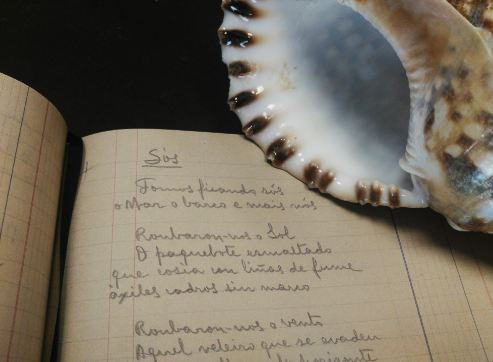 Sós
Fomos ficando sós
o Mar o barco e mais nós
Roubaron-nos o Sol
O paquebote esmaltado
que cosía con liñas de fume
áxiles cadros sin marco
Roubaron-nos o vento
Aquel veleiro que se evadeu